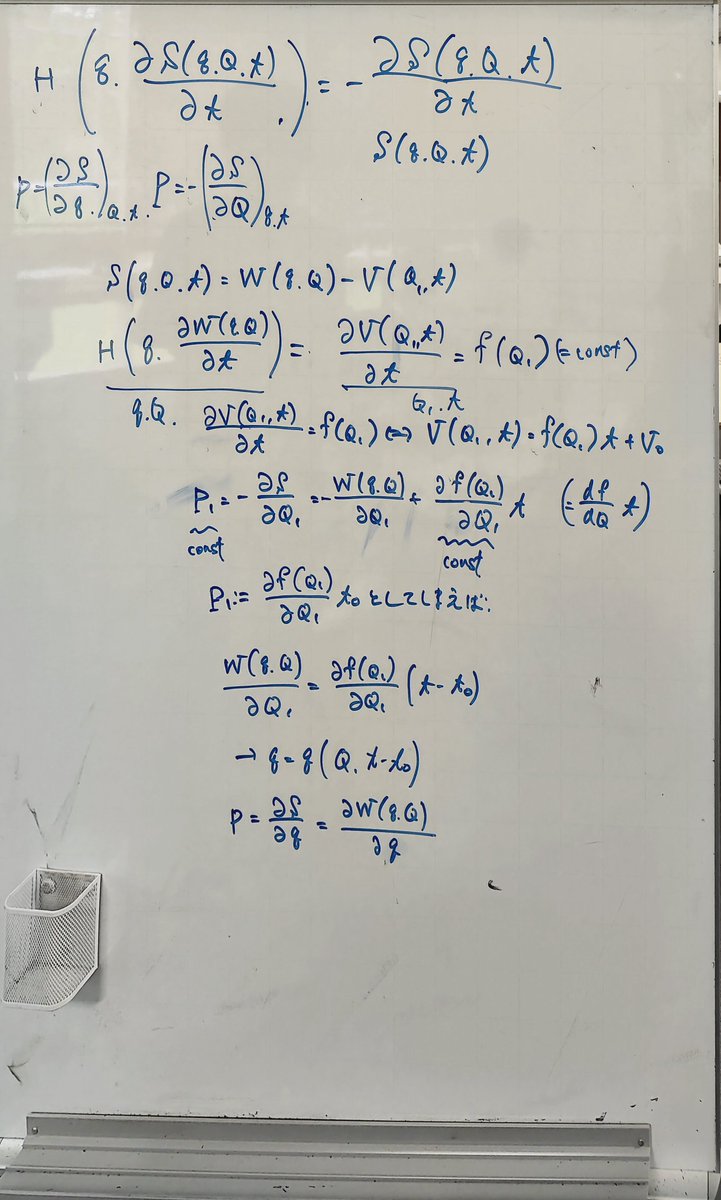 H(q. ∂S(q.Q.t)/∂t .) = - ∂S(q.Q.t)/∂t
S(q.Q.t)
p=(∂S/∂q.)Q.t. P=-(∂S/∂Q)q.t
S(q.Q.t)=W(q.Q)-V(Q₁,t)
H(q. ∂W(q.Q)/∂t)= ∂V(Q₁,t)/∂t = f(Q₁)(=const)
q.Q. Q₁.t
∂V(Q₁,t)/∂t = f(Q₁) ⇔ V(Q₁,t)=f(Q₁)t+V₀
P₁=-∂S/∂Q₁ =-W(q.Q)/∂Q₁ + ∂f(Q₁)/∂Q₁ t (=df/dQ t)
const const
P₁:= ∂f(Q₁)/∂Q₁ t₀ としてしまえば.
W(q.Q)/∂Q₁ = ∂f(Q₁)/∂Q₁ (t-t₀)
→ q=q(Q.t-t₀)
P=∂S/∂q = ∂W(q.Q)/∂q